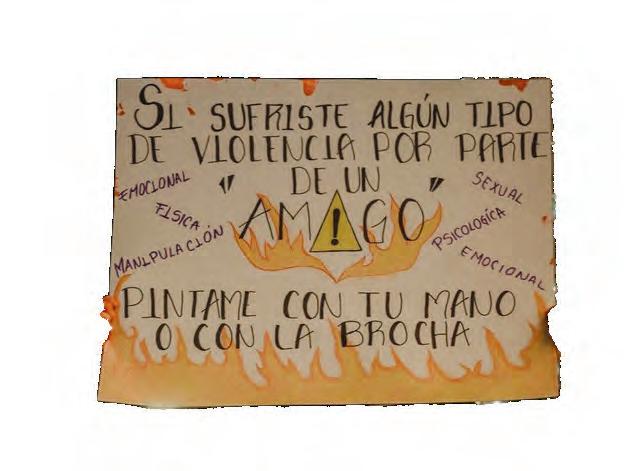 SI SUFRISTE ALGÚN TIPO
DE VIOLENCIA POR PARTE
DE UN
"AMIGO"
EMOCIONAL
FISICA
MANIPULACIÓN
SEXUAL
PSICOLOGÍCA
EMOCIONAL
PINTAME CON TU MANO
O CON LA BROCHA